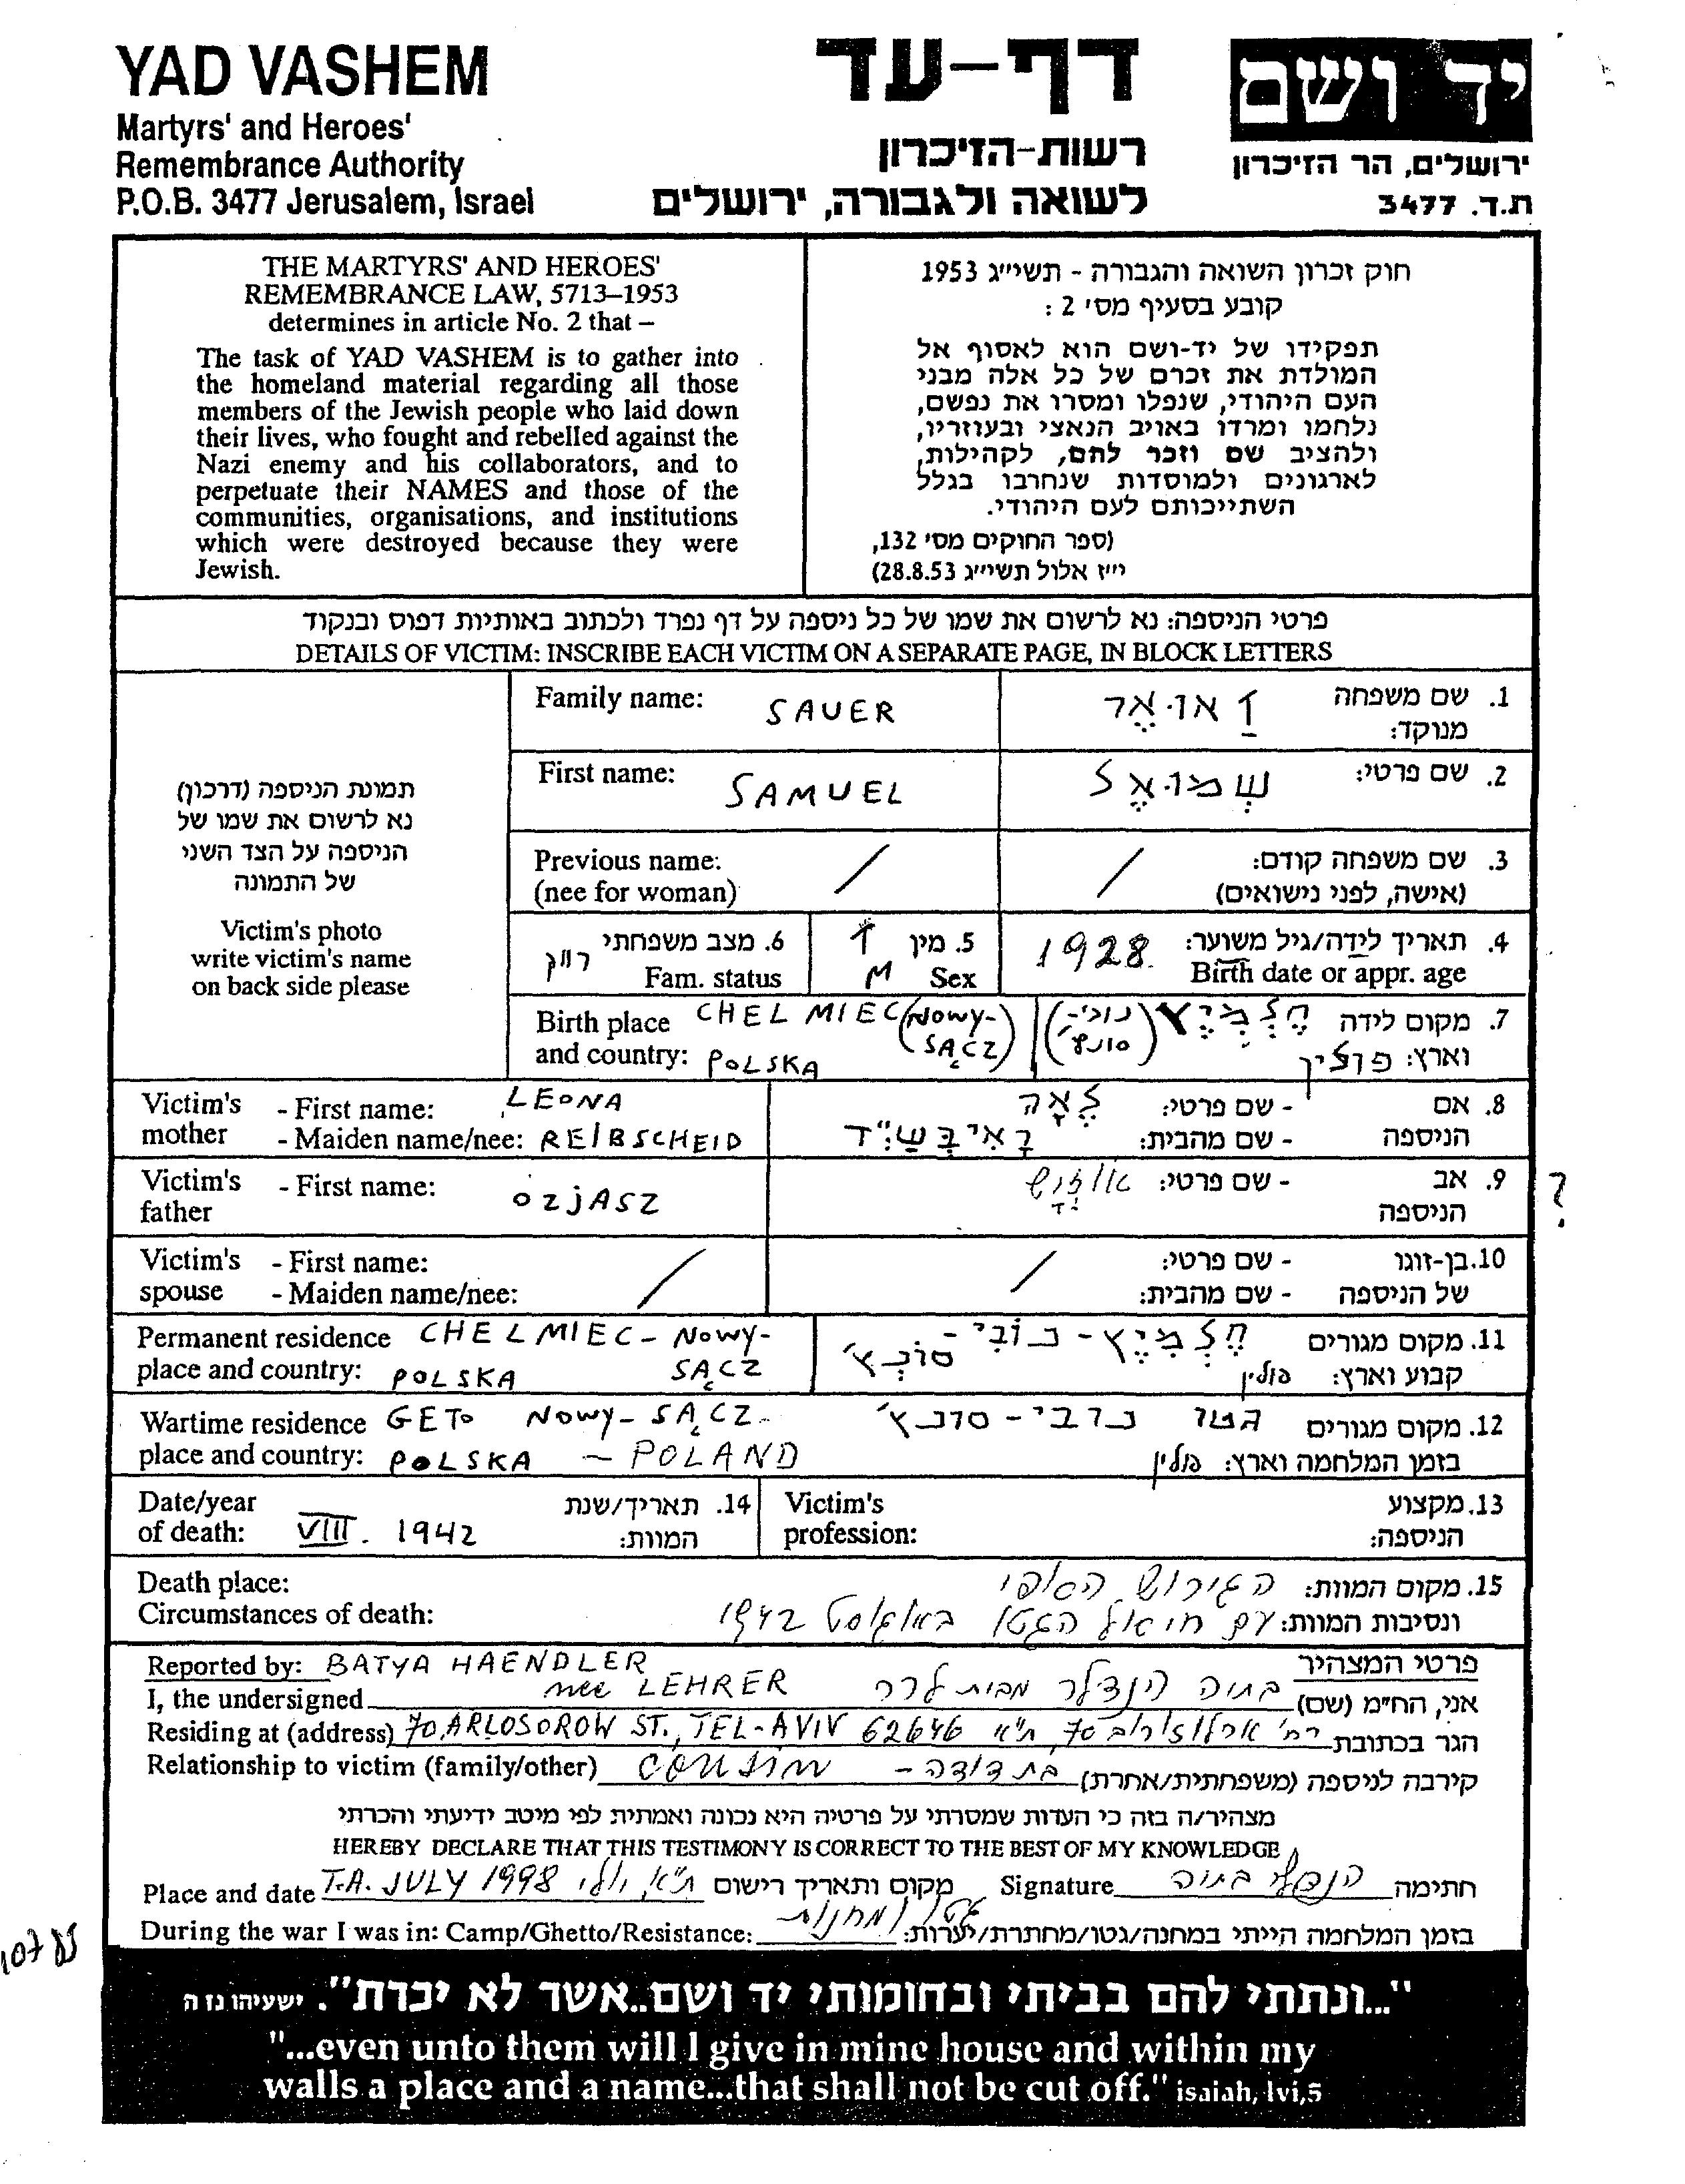 YAD VASHEM
Martyrs' and Heroes'
Remembrance Authority
P.O.B. 3477 Jerusalem, Israel
דף-עד
רשות-הזיכרון
לשואה ולגבורה, ירושלים
יד ושם
ירושלים, הר הזיכרון
ת.ד. 3477
THE MARTYRS' AND HEROES'
REMEMBRANCE LAW, 5713–1953
determines in article No. 2 that –
The task of YAD VASHEM is to gather into
the homeland material regarding all those
members of the Jewish people who laid down
their lives, who fought and rebelled against the
Nazi enemy and his collaborators, and to
perpetuate their NAMES and those of the
communities, organisations, and institutions
which were destroyed because they were
Jewish.
חוק זכרון השואה והגבורה - תשי״ג 1953
קובע בסעיף מס' 2 :
תפקידו של יד-ושם הוא לאסוף אל
המולדת את זכרם של כל אלה מבני
העם היהודי, שנפלו ומסרו את נפשם,
נלחמו ומרדו באויב הנאצי ובעוזריו,
ולהציב שם וזכר להם, לקהילות,
לארגונים ולמוסדות שנחרבו בגלל
השתייכותם לעם היהודי.
(ספר החוקים מס' 132,
י״ז אלול תשי״ג 28.8.53)
פרטי הניספה: נא לרשום את שמו של כל ניספה על דף נפרד ולכתוב באותיות דפוס ובנקוד
DETAILS OF VICTIM: INSCRIBE EACH VICTIM ON A SEPARATE PAGE, IN BLOCK LETTERS
תמונת הניספה (דרכון)
נא לרשום את שמו של
הניספה על הצד השני
של התמונה
Victim's photo
write victim's name
on back side please
Family name: SAUER זַאוּאֶר 1. שם משפחה
מנוקד:
First name: SAMUEL שְמוּאֶל 2. שם פרטי:
Previous name: / / 3. שם משפחה קודם:
(nee for woman) (אישה, לפני נישואים)
6. מצב משפחתי רווק 5. מין ז 1928. 4. תאריך לידה/גיל משוער:
Fam. status M Sex Birth date or appr. age
Birth place CHELMIEC (NOWY- חֶלְמִיֶץ (נובי- 7. מקום לידה
and country: POLSKA SĄCZ) סונץ') וארץ: פולין
Victim's - First name: LEONA לֶאָה - שם פרטי: 8. אם
mother - Maiden name/nee: REIBSCHEID רָאִיבְּשַיְיד - שם מהבית: הניספה
Victim's - First name: OZJASZ - שם פרטי: 9. אב
father הניספה
?
Victim's - First name: / / - שם פרטי: 10. בן-זוגו
spouse - Maiden name/nee: - שם מהבית: של הניספה
Permanent residence CHELMIEC - NOWY- חֶלְמִיֶץ - נוֹבִי - 11. מקום מגורים
place and country: POLSKA SĄCZ סוֹנְץ' קבוע וארץ: פולין
Wartime residence GETO NOWY - SĄCZ - גטו נובי - סונץ' 12. מקום מגורים
place and country: POLSKA – POLAND בזמן המלחמה וארץ: פולין
Date/year 14. תאריך/שנת Victim's 13. מקצוע
of death: VIII. 1942 המוות: profession: הניספה:
Death place: הגירוש הסופי 15. מקום המוות:
Circumstances of death: עם חיסול הגטו באוגוסט 1942 ונסיבות המוות:
Reported by: BATYA HAENDLER פרטי המצהיר
I, the undersigned nee LEHRER בתיה הנדלר מבית לרר אני, הח״מ (שם)
Residing at (address) 70, ARLOSOROW ST., TEL-AVIV 62646 רח' ארלוזורוב 70, ת״א הגר בכתובת
Relationship to victim (family/other) COUSIN בת דודה - קירבה לניספה (משפחתית/אחרת)
מצהיר/ה בזה כי העדות שמסרתי על פרטיה היא נכונה ואמתית לפי מיטב ידיעתי והכרתי
HEREBY DECLARE THAT THIS TESTIMONY IS CORRECT TO THE BEST OF MY KNOWLEDGE
Place and date T.A. JULY 1998 ת״א, יולי מקום ותאריך רישום Signature הנדלר בתיה חתימה
During the war I was in: Camp/Ghetto/Resistance: גטו ומחנות בזמן המלחמה הייתי במחנה/גטו/מחתרת/יערות:
"...ונתתי להם בביתי ובחומותי יד ושם..אשר לא יכרת". ישעיהו נז ה
"...even unto them will I give in mine house and within my
walls a place and a name...that shall not be cut off." isaiah, lvi,5